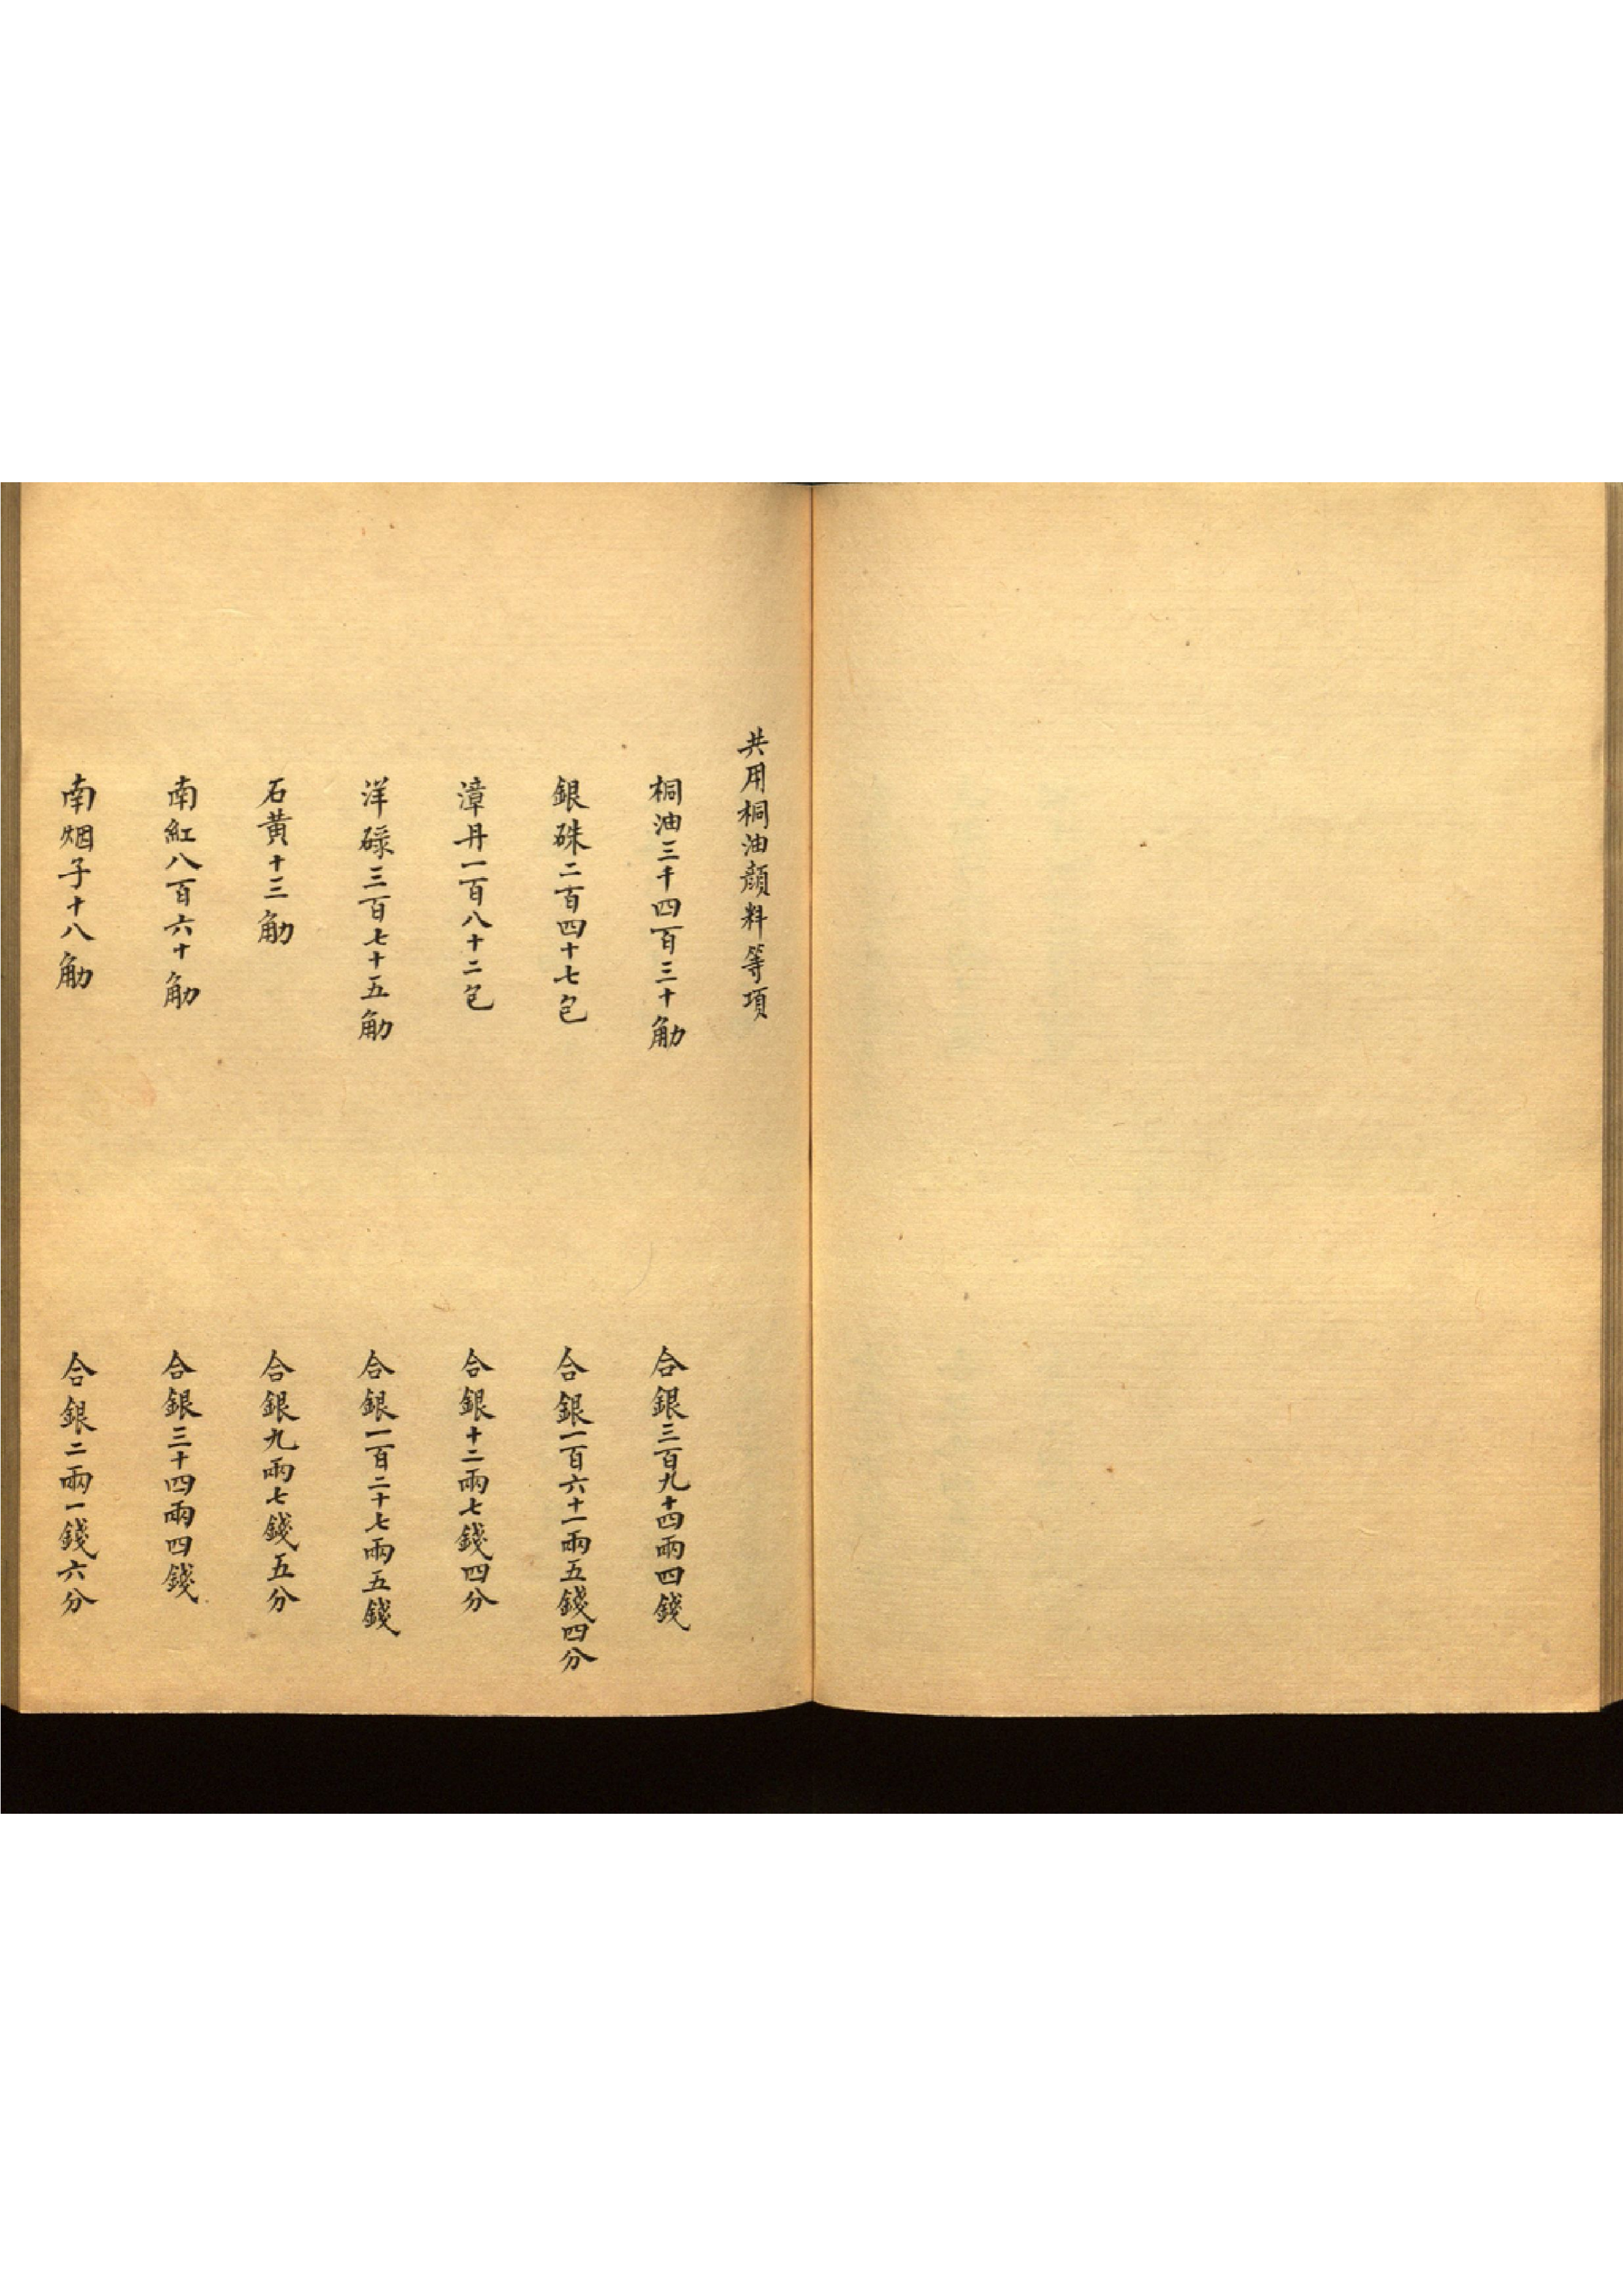 共用桐油顔料等項
桐油三千四百三十觔 合銀三百九十四兩四錢
銀硃二百四十七包 合銀一百六十一兩五錢四分
漳丹一百八十二包 合銀十二兩七錢四分
洋碌三百七十五觔 合銀一百二十七兩五錢
石黃十三觔 合銀九兩七錢五分
南紅八百六十觔 合銀三十四兩四錢
南烟子十八觔 合銀二兩一錢六分